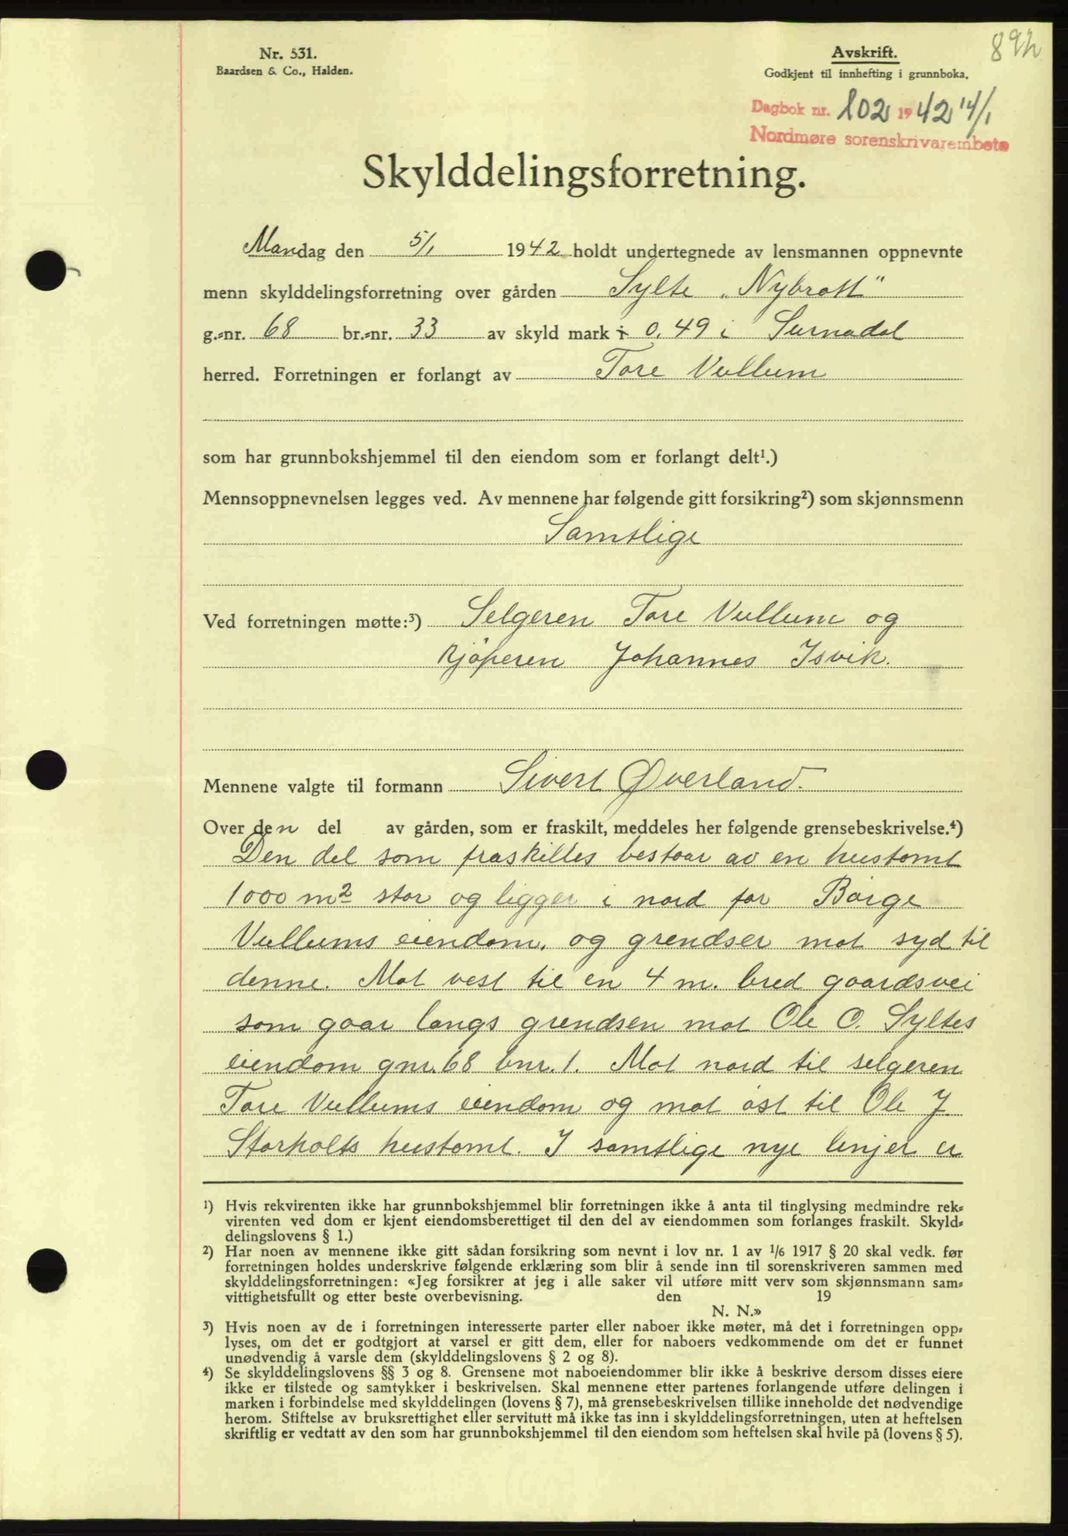 Nr. 531.
Baardsen & Co., Halden.
Avskrift.
Godkjent til innhefting i grunnboka.
892
Dagbok nr. 102 1942 14/1
Nordmøre sorenskrivarembete
Skylddelingsforretning.
Mandag den 5/1 1942 holdt undertegnede av lensmannen oppnevnte
menn skylddelingsforretning over gården Sylte "Nybrott"
g.-nr. 68 br.-nr. 33 av skyld mark 0,49 i Surnadal
herred. Forretningen er forlangt av Tore Vullum
som har grunnbokshjemmel til den eiendom som er forlangt delt¹.)
Mennsoppnevnelsen legges ved. Av mennene har følgende gitt forsikring²) som skjønnsmenn
Samtlige
Ved forretningen møtte:³) Selgeren Tore Vullum og
kjøperen Johannes Isvik.
Mennene valgte til formann Sivert Øverland.
Over den del av gården, som er fraskilt, meddeles her følgende grensebeskrivelse.⁴)
Den del som fraskilles bestaar av en hustomt
1000 m² stor og ligger i nord for Børge
Vullums eiendom, og grendser mot syd til
denne. Mot vest til en 4 m. bred gaardsvei
som gaar langs grendsen mot Ole O. Syltes
eiendom gnr. 68 bnr. 1. Mot nord til selgeren
Tore Vullums eiendom og mot øst til Ole J.
Storholts hustomt. I samtlige nye linjer er
¹) Hvis rekvirenten ikke har grunnbokshjemmel blir forretningen ikke å anta til tinglysing medmindre rek-
virenten ved dom er kjent eiendomsberettiget til den del av eiendommen som forlanges fraskilt. Skyld-
delingslovens § 1.)
²) Har noen av mennene ikke gitt sådan forsikring som nevnt i lov nr. 1 av 1/6 1917 § 20 skal vedk. før
forretningen holdes underskrive følgende erklæring som blir å sende inn til sorenskriveren sammen med
skylddelingsforretningen: «Jeg forsikrer at jeg i alle saker vil utføre mitt verv som skjønnsmann sam-
vittighetsfullt og etter beste overbevisning. den 19
N. N.»
³) Hvis noen av de i forretningen interesserte parter eller naboer ikke møter, må det i forretningen opp-
lyses, om det er godtgjort at varsel er gitt dem, eller for naboers vedkommende om det er funnet
unødvendig å varsle dem (skylddelingslovens § 2 og 8).
⁴) Se skylddelingslovens §§ 3 og 8. Grensene mot naboeiendommer blir ikke å beskrive dersom disses eiere
ikke er tilstede og samtykker i beskrivelsen. Skal mennene etter partenes forlangende utføre delingen i
marken i forbindelse med skylddelingen (lovens § 7), må grensebeskrivelsen tillike inneholde det nødvendige
herom. Stiftelse av bruksrettighet eller servitutt må ikke tas inn i skylddelingsforretningen, uten at heftelsen
skriftlig er vedtatt av den som har grunnbokshjemmel til den eiendom som heftelsen skal hvile på (lovens § 5).